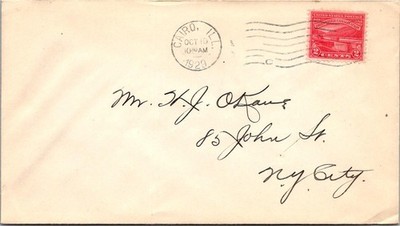 CAIRO, ILL.
OCT
AM
1929
2 CENTS 2
Mr. H. J. O'Kane
85 John St.
N.Y. City.